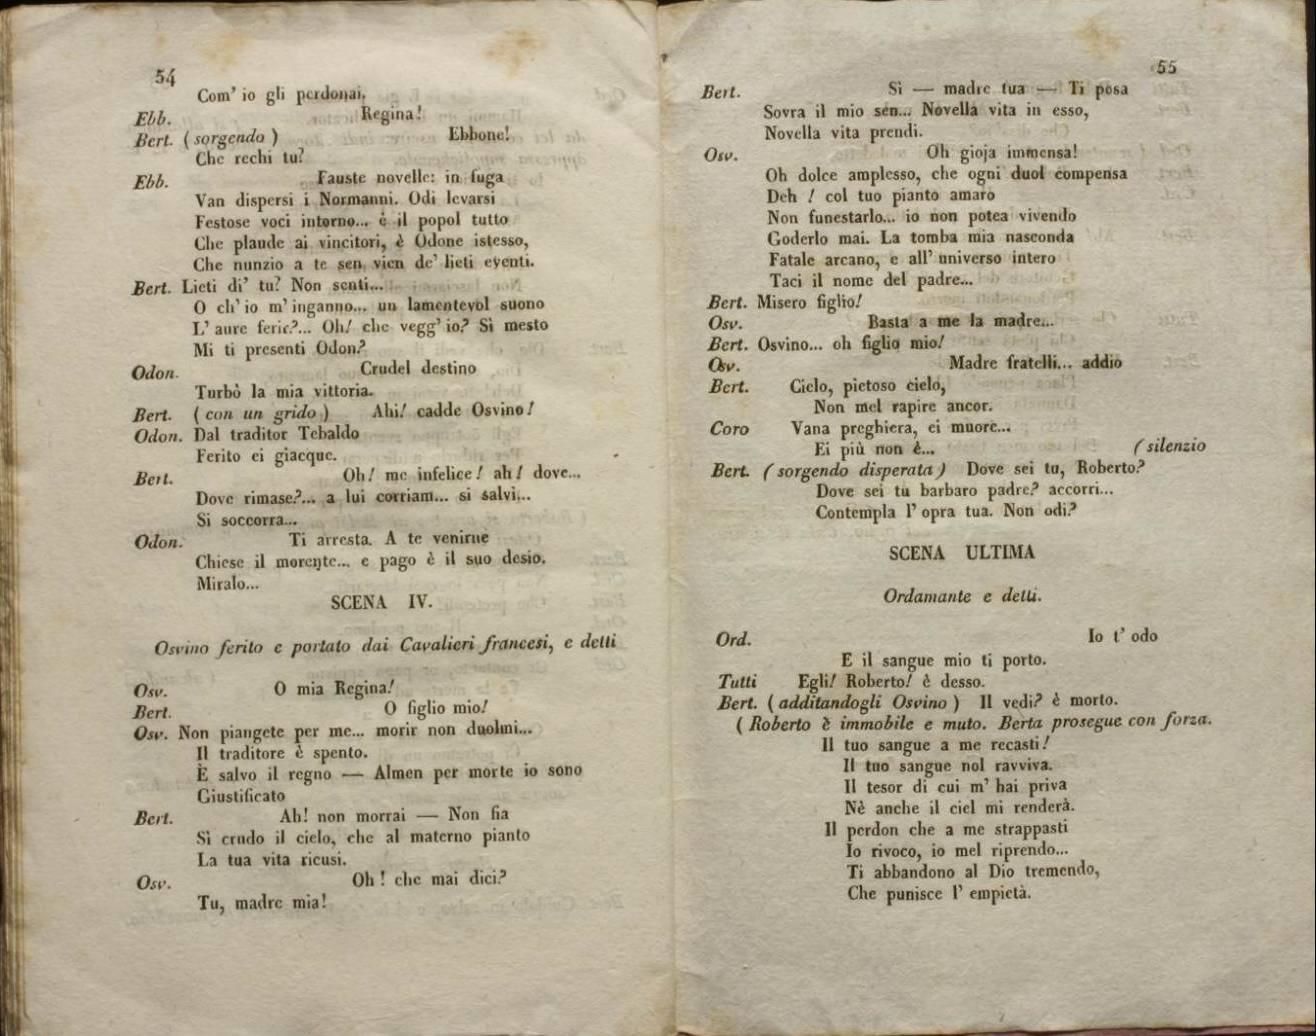 54
Com' io gli perdonai.
Ebb. Regina!
Bert. (sorgendo) Ebbone!
Che rechi tu?
Ebb. Fauste novelle: in fuga
Van dispersi i Normanni. Odi levarsi
Festose voci intorno... è il popol tutto
Che plaude ai vincitori, è Odone istesso,
Che nunzio a te sen vien de' lieti eventi.
Bert. Lieti di' tu? Non senti...
O ch' io m' inganno... un lamentevol suono
L' aure ferir?... Oh! che vegg' io? Sì mesto
Mi ti presenti Odon?
Odon. Crudel destino
Turbò la mia vittoria.
Bert. (con un grido) Ahi! cadde Osvino!
Odon. Dal traditor Tebaldo
Ferito ei giacque.
Bert. Oh! me infelice! ah! dove...
Dove rimase?... a lui corriam... si salvi...
Si soccorra...
Odon. Ti arresta. A te venirne
Chiese il morente... e pago è il suo desio.
Miralo...
SCENA IV.
Osvino ferito e portato dai Cavalieri francesi, e detti
Osv. O mia Regina!
Bert. O figlio mio!
Osv. Non piangete per me... morir non duolmi...
Il traditore è spento.
È salvo il regno — Almen per morte io sono
Giustificato
Bert. Ah! non morrai — Non fia
Sì crudo il cielo, che al materno pianto
La tua vita ricusi.
Osv. Oh! che mai dici?
Tu, madre mia!
55
Bert. Sì — madre tua — Ti posa
Sovra il mio sen... Novella vita in esso,
Novella vita prendi.
Osv. Oh gioja immensa!
Oh dolce amplesso, che ogni duol compensa
Deh ! col tuo pianto amaro
Non funestarlo... io non potea vivendo
Goderlo mai. La tomba mia nasconda
Fatale arcano, e all' universo intero
Taci il nome del padre...
Bert. Misero figlio!
Osv. Basta a me la madre...
Bert. Osvino... oh figlio mio!
Osv. Madre fratelli... addio
Bert. Cielo, pietoso cielo,
Non mel rapire ancor.
Coro Vana preghiera, ei muore...
Ei più non è... (silenzio
Bert. (sorgendo disperata) Dove sei tu, Roberto?
Dove sei tu barbaro padre? accorri...
Contempla l' opra tua. Non odi?
SCENA ULTIMA
Ordamante e detti.
Ord. Io t' odo
E il sangue mio ti porto.
Tutti Egli! Roberto! è desso.
Bert. (additandogli Osvino) Il vedi? è morto.
(Roberto è immobile e muto. Berta prosegue con forza.
Il tuo sangue a me recasti!
Il tuo sangue nol ravviva.
Il tesor di cui m' hai priva
Nè anche il ciel mi renderà.
Il perdon che a me strappasti
Io rivoco, io mel riprendo...
Ti abbandono al Dio tremendo,
Che punisce l' empietà.